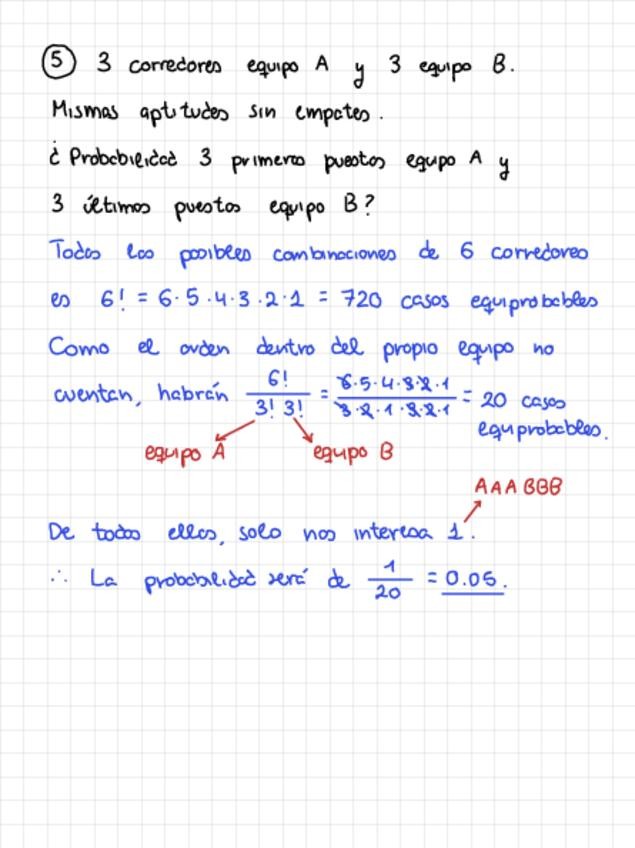 5 3 corredores equipo A y 3 equipo B.
Mismas aptitudes sin empates.
¿Probabilidad 3 primeros puestos equipo A y
3 últimos puestos equipo B?
Todas las posibles combinaciones de 6 corredores
es 6! = 6·5·4·3·2·1 = 720 casos equiprobables
Como el orden dentro del propio equipo no
cuentan, habrán 6!/3! 3! = 6·5·4·3·2·1/3·2·1·3·2·1 = 20 casos
equiprobables.
equipo A equipo B
AAABBB
De todos ellos, solo nos interesa 1.
∴ La probabilidad será de 1/20 = 0.05.